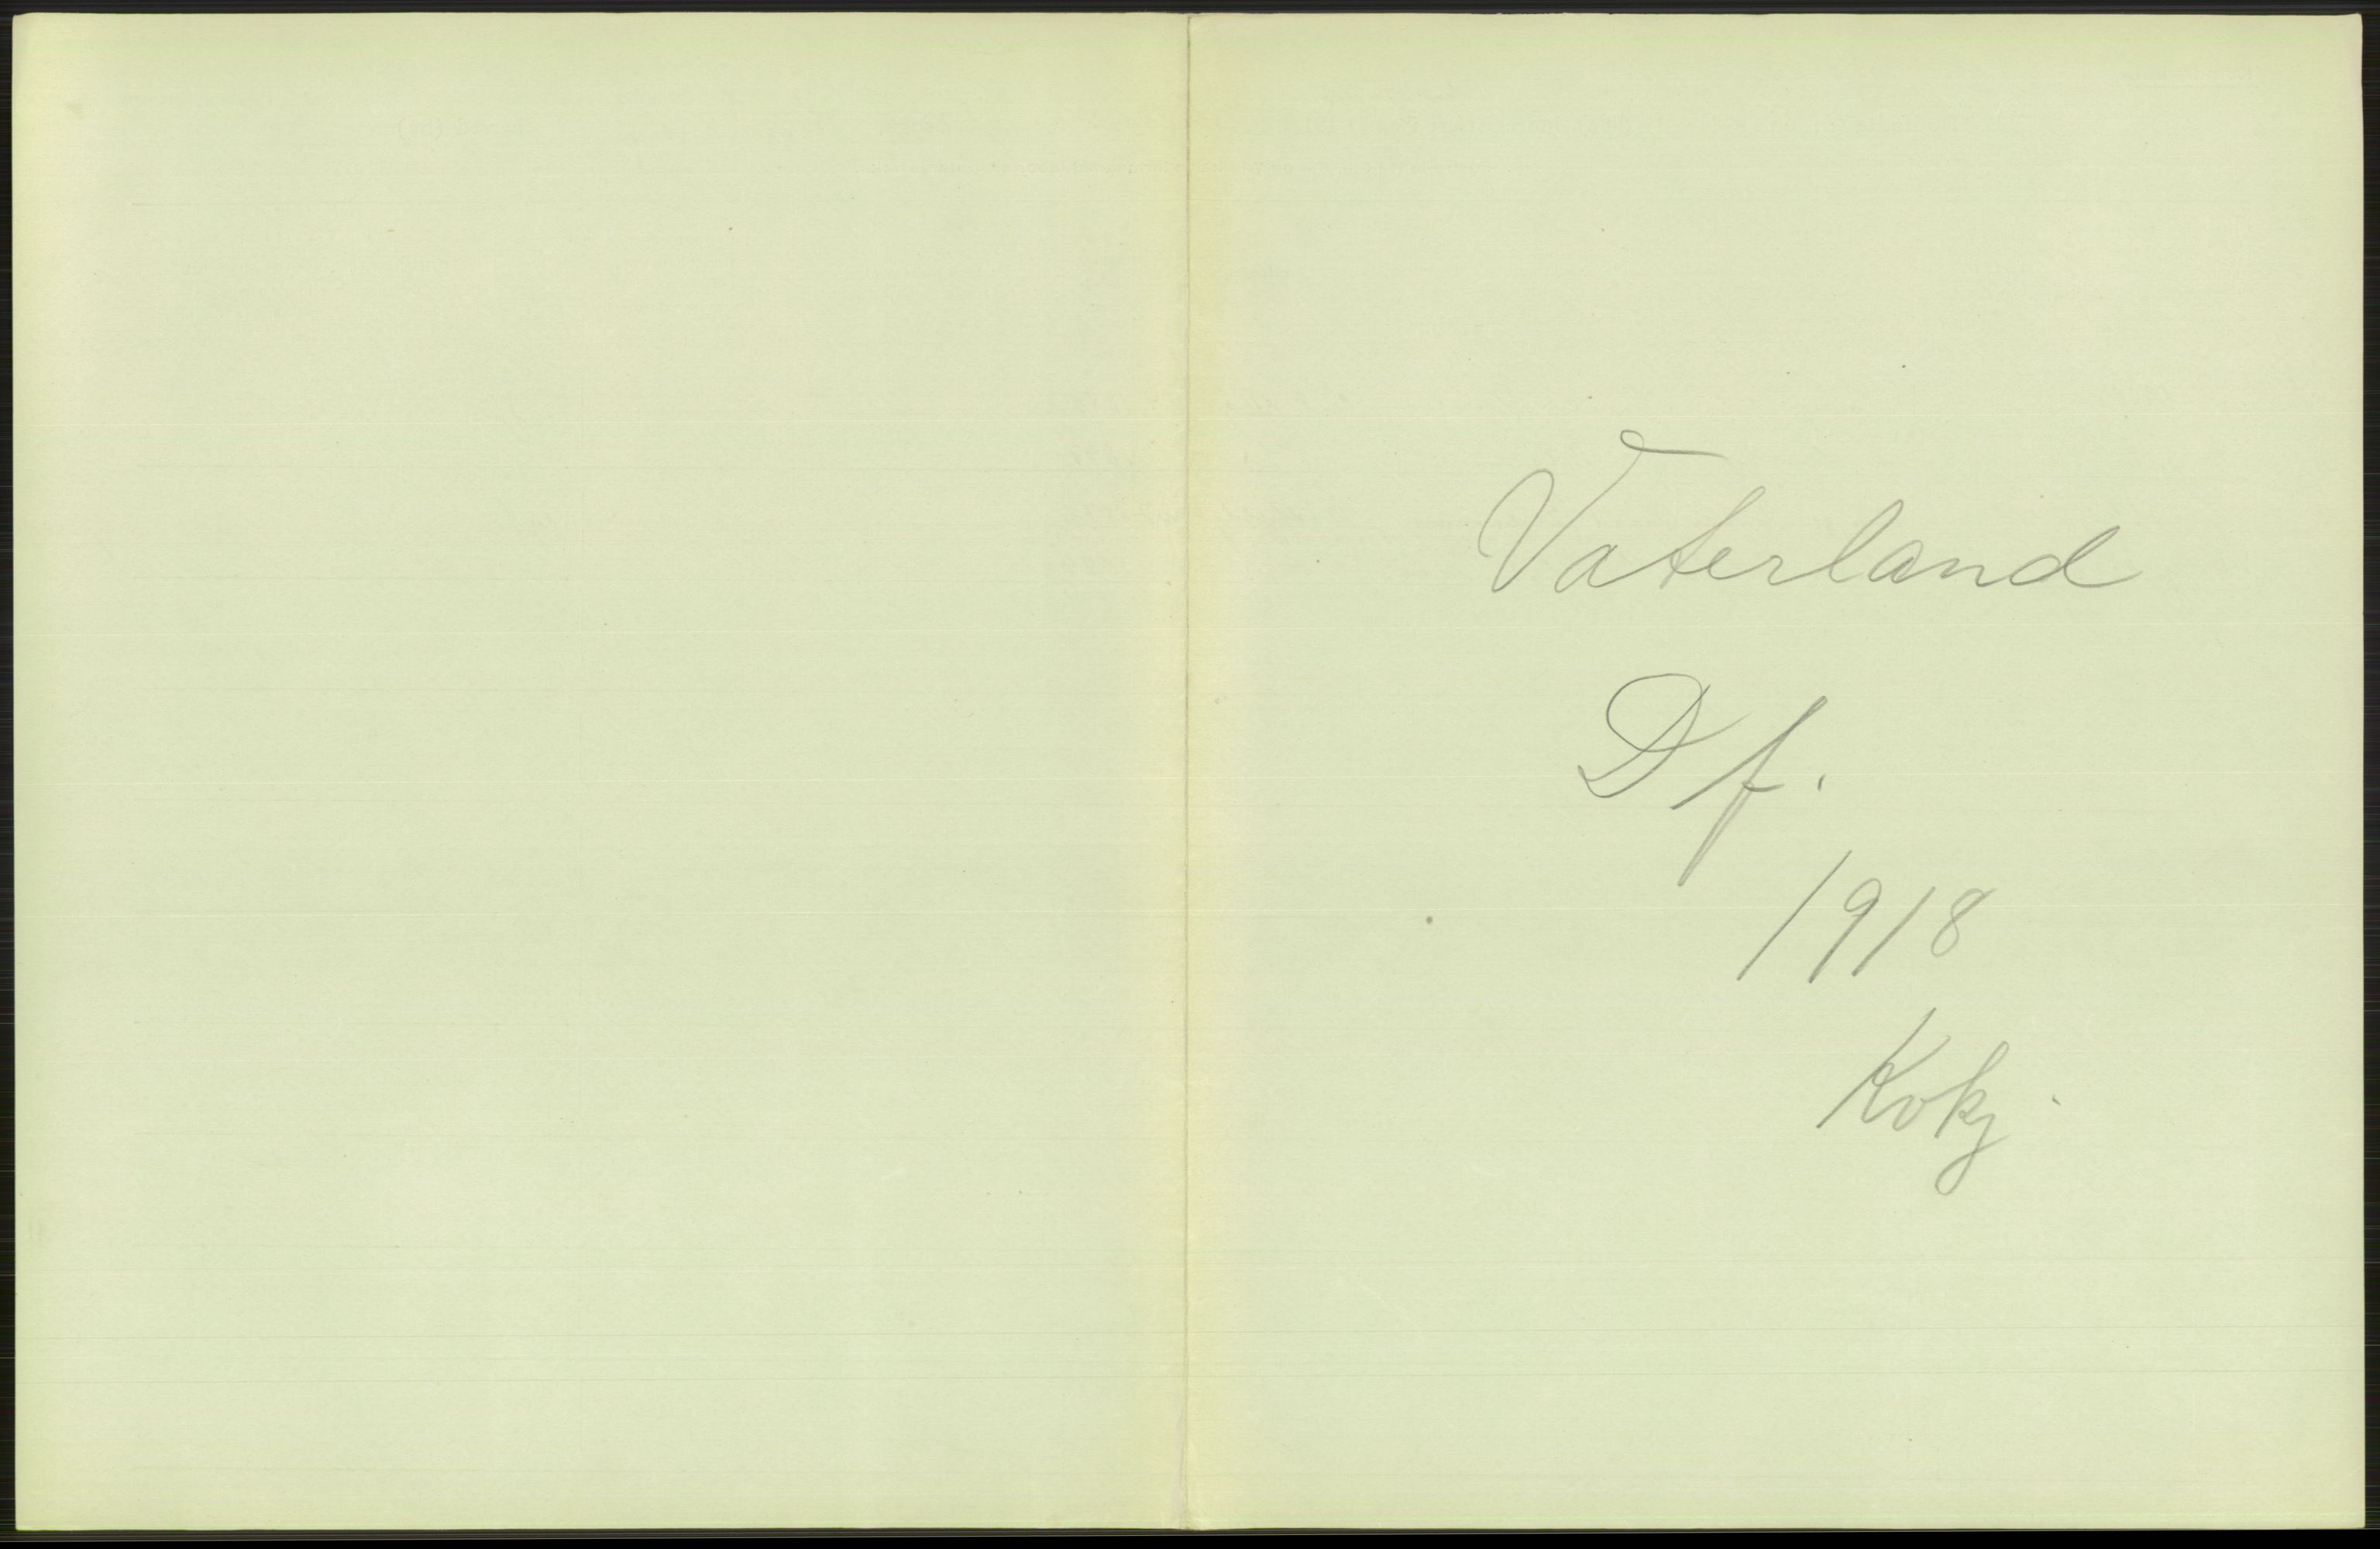 Vaterland
Df.
1918
Kvkj.